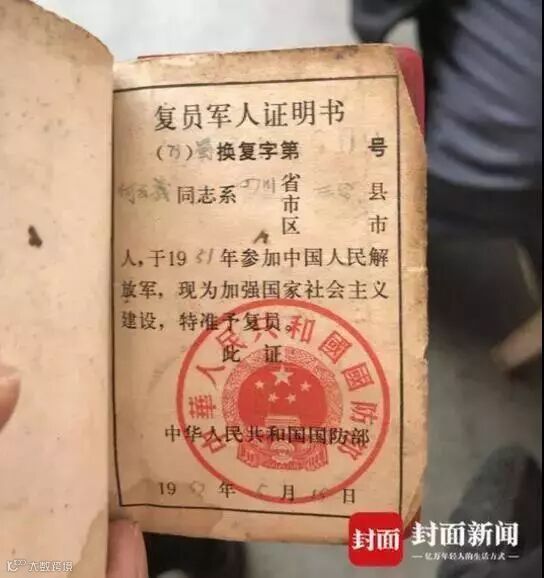 复员军人证明书
换复字第 号
同志系 四川 省 县
市
区 市
人，于1951年参加中国人民解
放军，现为加强国家社会主义
建设，特准予复员。
此 证
中華人民共和國國防部
中华人民共和国国防部
19 年 月 日
封面 封面新闻
亿万年轻人的生活方式
大数跨境